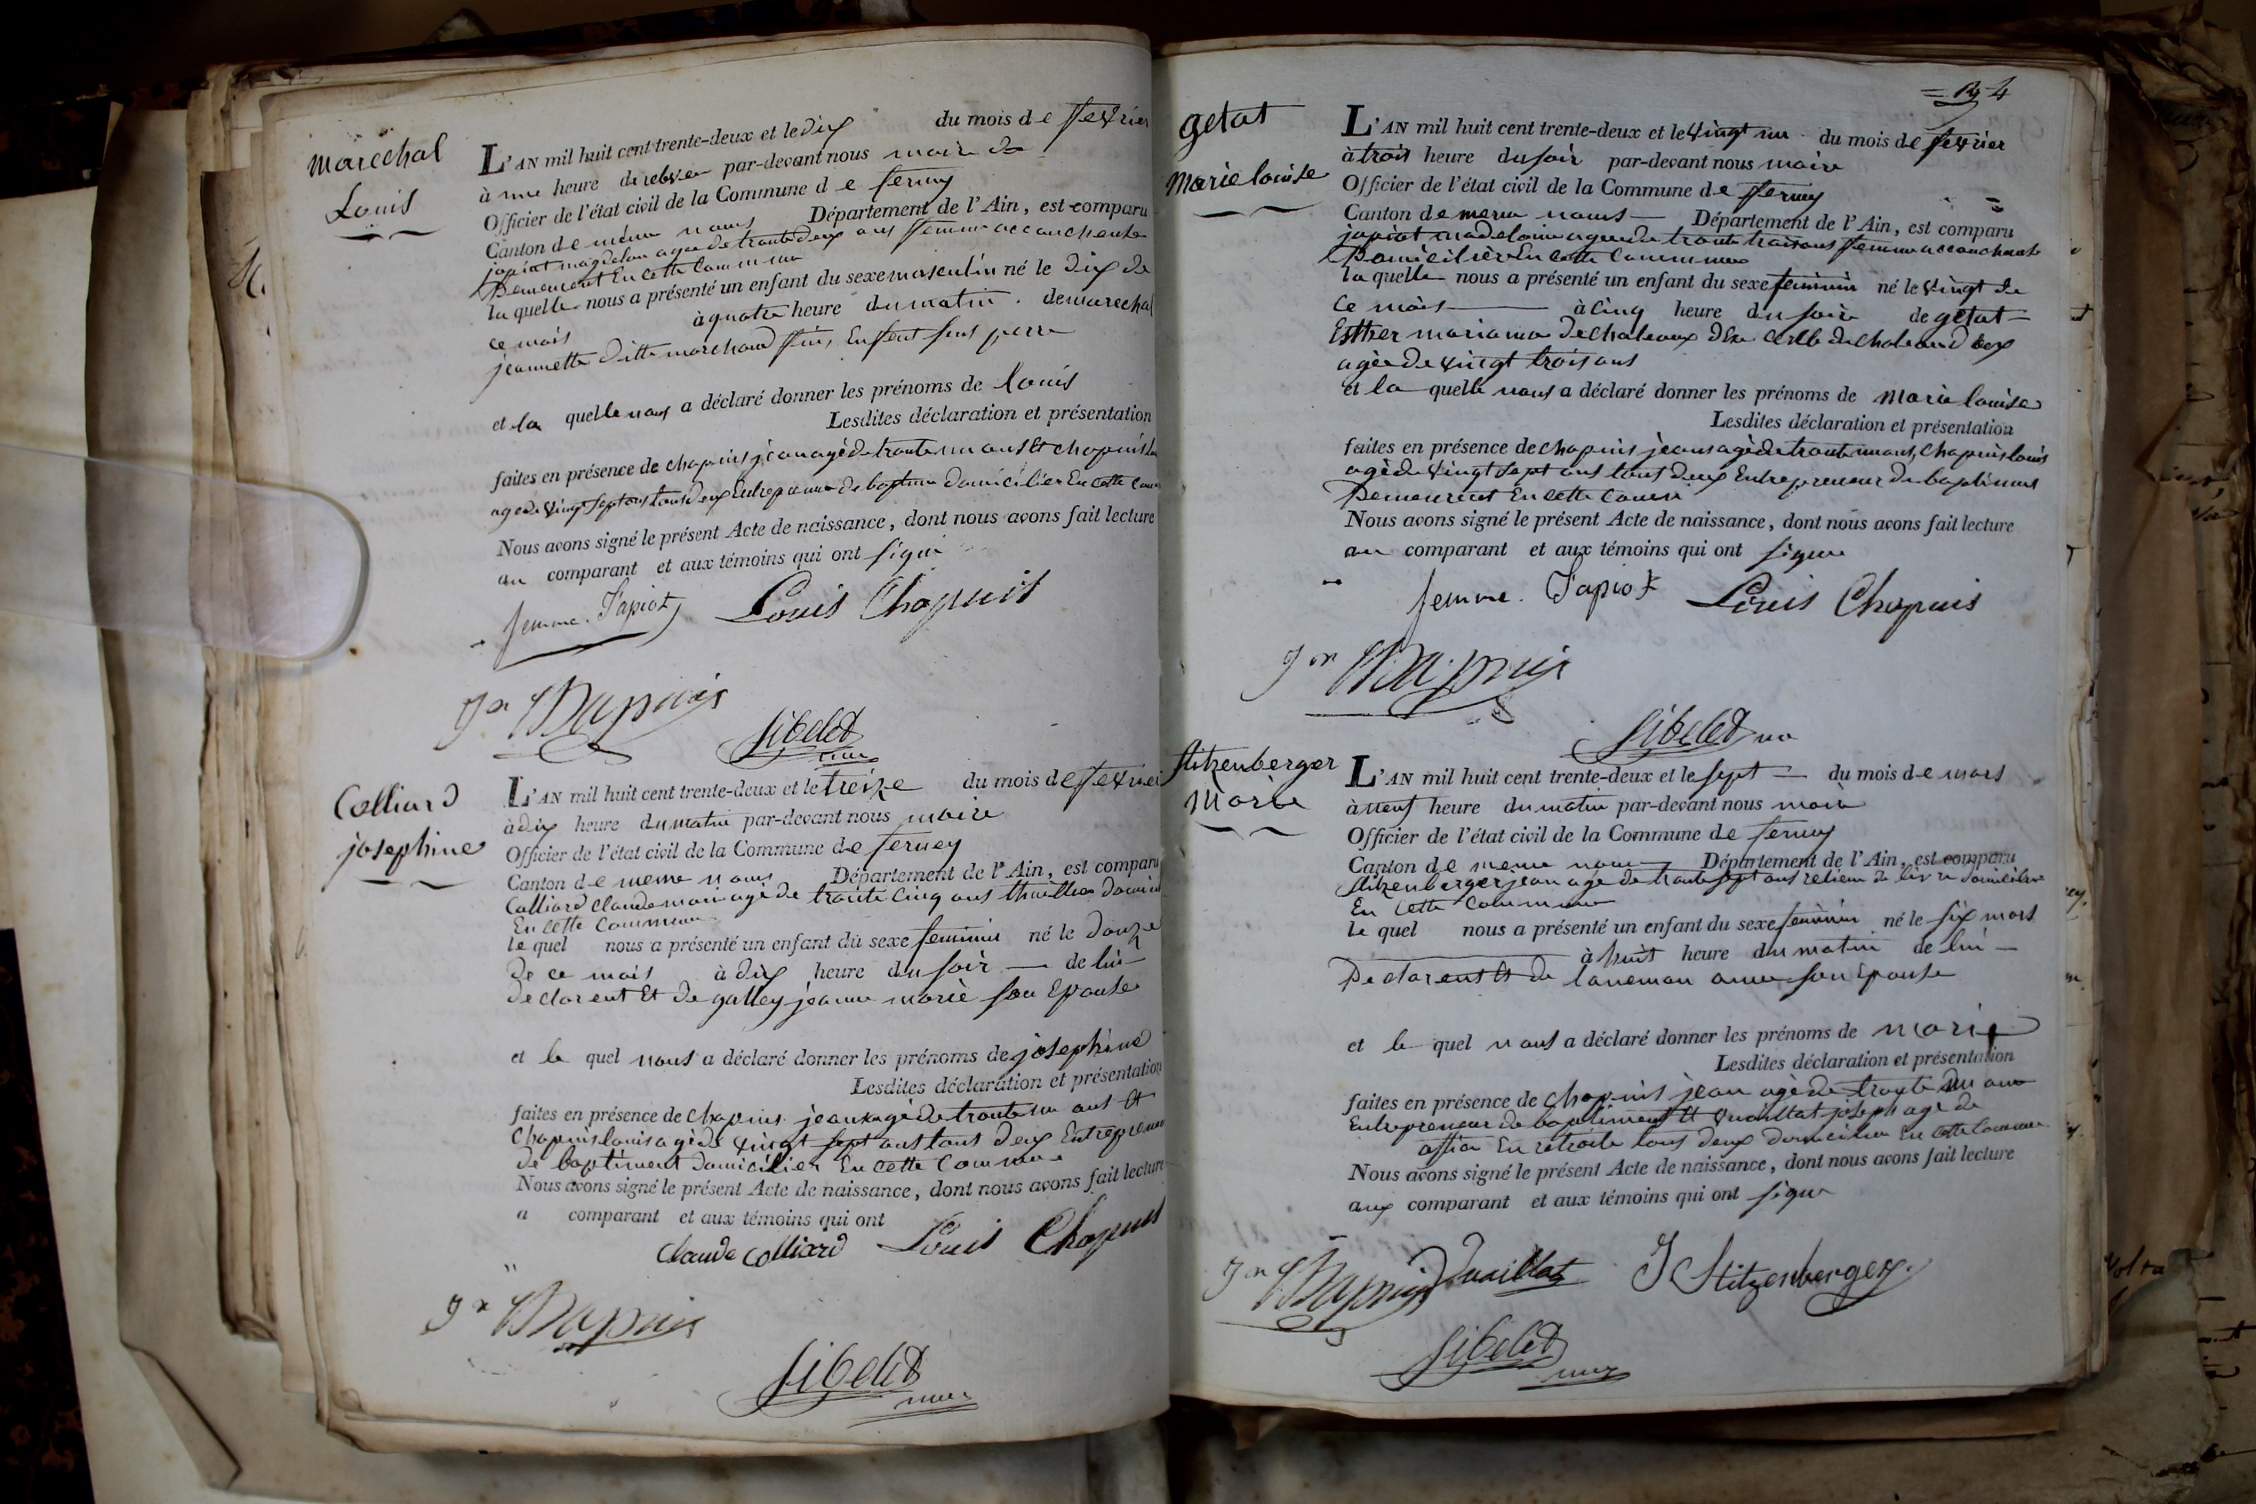 marechal
Louis
L'AN mil huit cent trente-deux et le dix du mois de fevrier
à une heure de relevee par-devant nous maire de
Officier de l'état civil de la Commune de ferney
Canton de même nous Département de l'Ain, est comparu
japiot magdelon agee de trante deux ans femme accouchente
Demeurent En cette commune
la quelle nous a présenté un enfant du sexe masculin né le dix de
ce mois à quatre heure du matin. de marechal
jeannette ditte marchand fine Enfent sens perre
et la quelle nous a déclaré donner les prénoms de louis
Lesdites déclaration et présentation
faites en présence de chapuis jean agè de trante un ans Et chapuis
age de vingt sept ans tous deux Entrepreneur de baptiment domicilier En cette
Nous avons signé le présent Acte de naissance, dont nous avons fait lecture
au comparant et aux témoins qui ont signé
femme. Japiot Louis Chapuis
Jn Chapuis
Sibelet
maire
Colliard
josephine
L'AN mil huit cent trente-deux et le treize du mois de fevrier
à dix heure du matin par-devant nous maire
Officier de l'état civil de la Commune de ferney
Canton de meme nous Département de l'Ain, est comparu
Colliard Claude marie agé de trante Cinq ans
En cette Commune
le quel nous a présenté un enfant du sexe feminin né le douze
de ce mois à dix heure du soir de lui
declarent Et de galley jeanne marie son Epouse
et le quel nous a déclaré donner les prénoms de josephine
Lesdites déclaration et présentation
faites en présence de chapuis jean agè de trante un ans Et
Chapuis louis agè de vingt sept ans tous deux Entrepreneur
de baptiment domicilier En cette Commune
Nous avons signé le présent Acte de naissance, dont nous avons fait lecture
a comparant et aux témoins qui ont
Claude Colliard Louis Chapuis
Jn Chapuis
Sibelet
maire
4
getat
Marie louise
L'AN mil huit cent trente-deux et le vingt un du mois de fevrier
à trois heure du soir par-devant nous maire
Officier de l'état civil de la Commune de fferney
Canton de meme nous Département de l'Ain, est comparu
japiot madeloine agee de trante trois ans femme accouchente
Domicilièr En cette Commune
la quelle nous a présenté un enfant du sexe feminin né le vingt de
ce mois à cinq heure du soir de getat
Esther mariana de chateaux
agèe de vingt trois ans
et la quelle nous a déclaré donner les prénoms de marie louise
Lesdites déclaration et présentation
faites en présence de chapuis jean agè de trante un ans, Chapuis louis
agè de vingt sept ans tous deux Entrepreneur de baptiment
Demeurent En cette Comune
Nous avons signé le présent Acte de naissance, dont nous avons fait lecture
au comparant et aux témoins qui ont signer
femme. Japiot Louis Chapuis
Jn Chapuis
Sibelet
Stitzenberger
Marie
L'AN mil huit cent trente-deux et le sept du mois de mars
à neuf heure du matin par-devant nous maire
Officier de l'état civil de la Commune de ferney
Canton de meme nous Département de l'Ain, est comparu
Stitzenberger jean age de trante sept ans relieur de livre domicilier
En cette commune
le quel nous a présenté un enfant du sexe feminin né le six mars
à huit heure du matin de lui
Declarent Et de laneman anne son Epouse
et le quel nous a déclaré donner les prénoms de marie
Lesdites déclaration et présentation
faites en présence de chapuis jean agè de trante un ans
Entrepreneur de baptiment Et Vuaillat joseph age de
En retraite tous deux domicilier En cette Commune
Nous avons signé le présent Acte de naissance, dont nous avons fait lecture
aux comparant et aux témoins qui ont signer
Jn Chapuis Vuaillat J Stitzenberger
Sibelet
maire